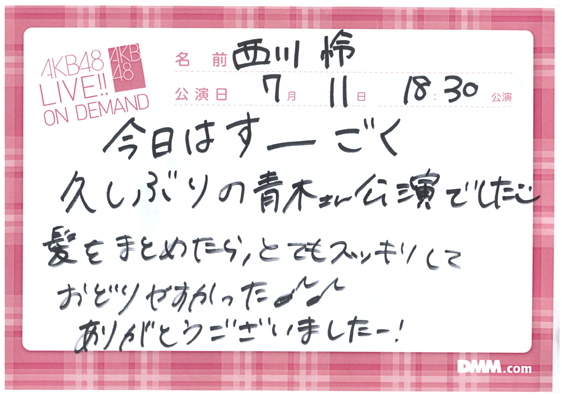 AKB48
LIVE!!
ON DEMAND
AKB
48
名前 西川 怜
公演日 7月 11日 18:30 公演
今日はすーごく
久しぶりの青木さん公演でした
髪をまとめたら,とてもスッキリして
おどりやすかった♪♪
ありがとうございましたー!
DMM.com